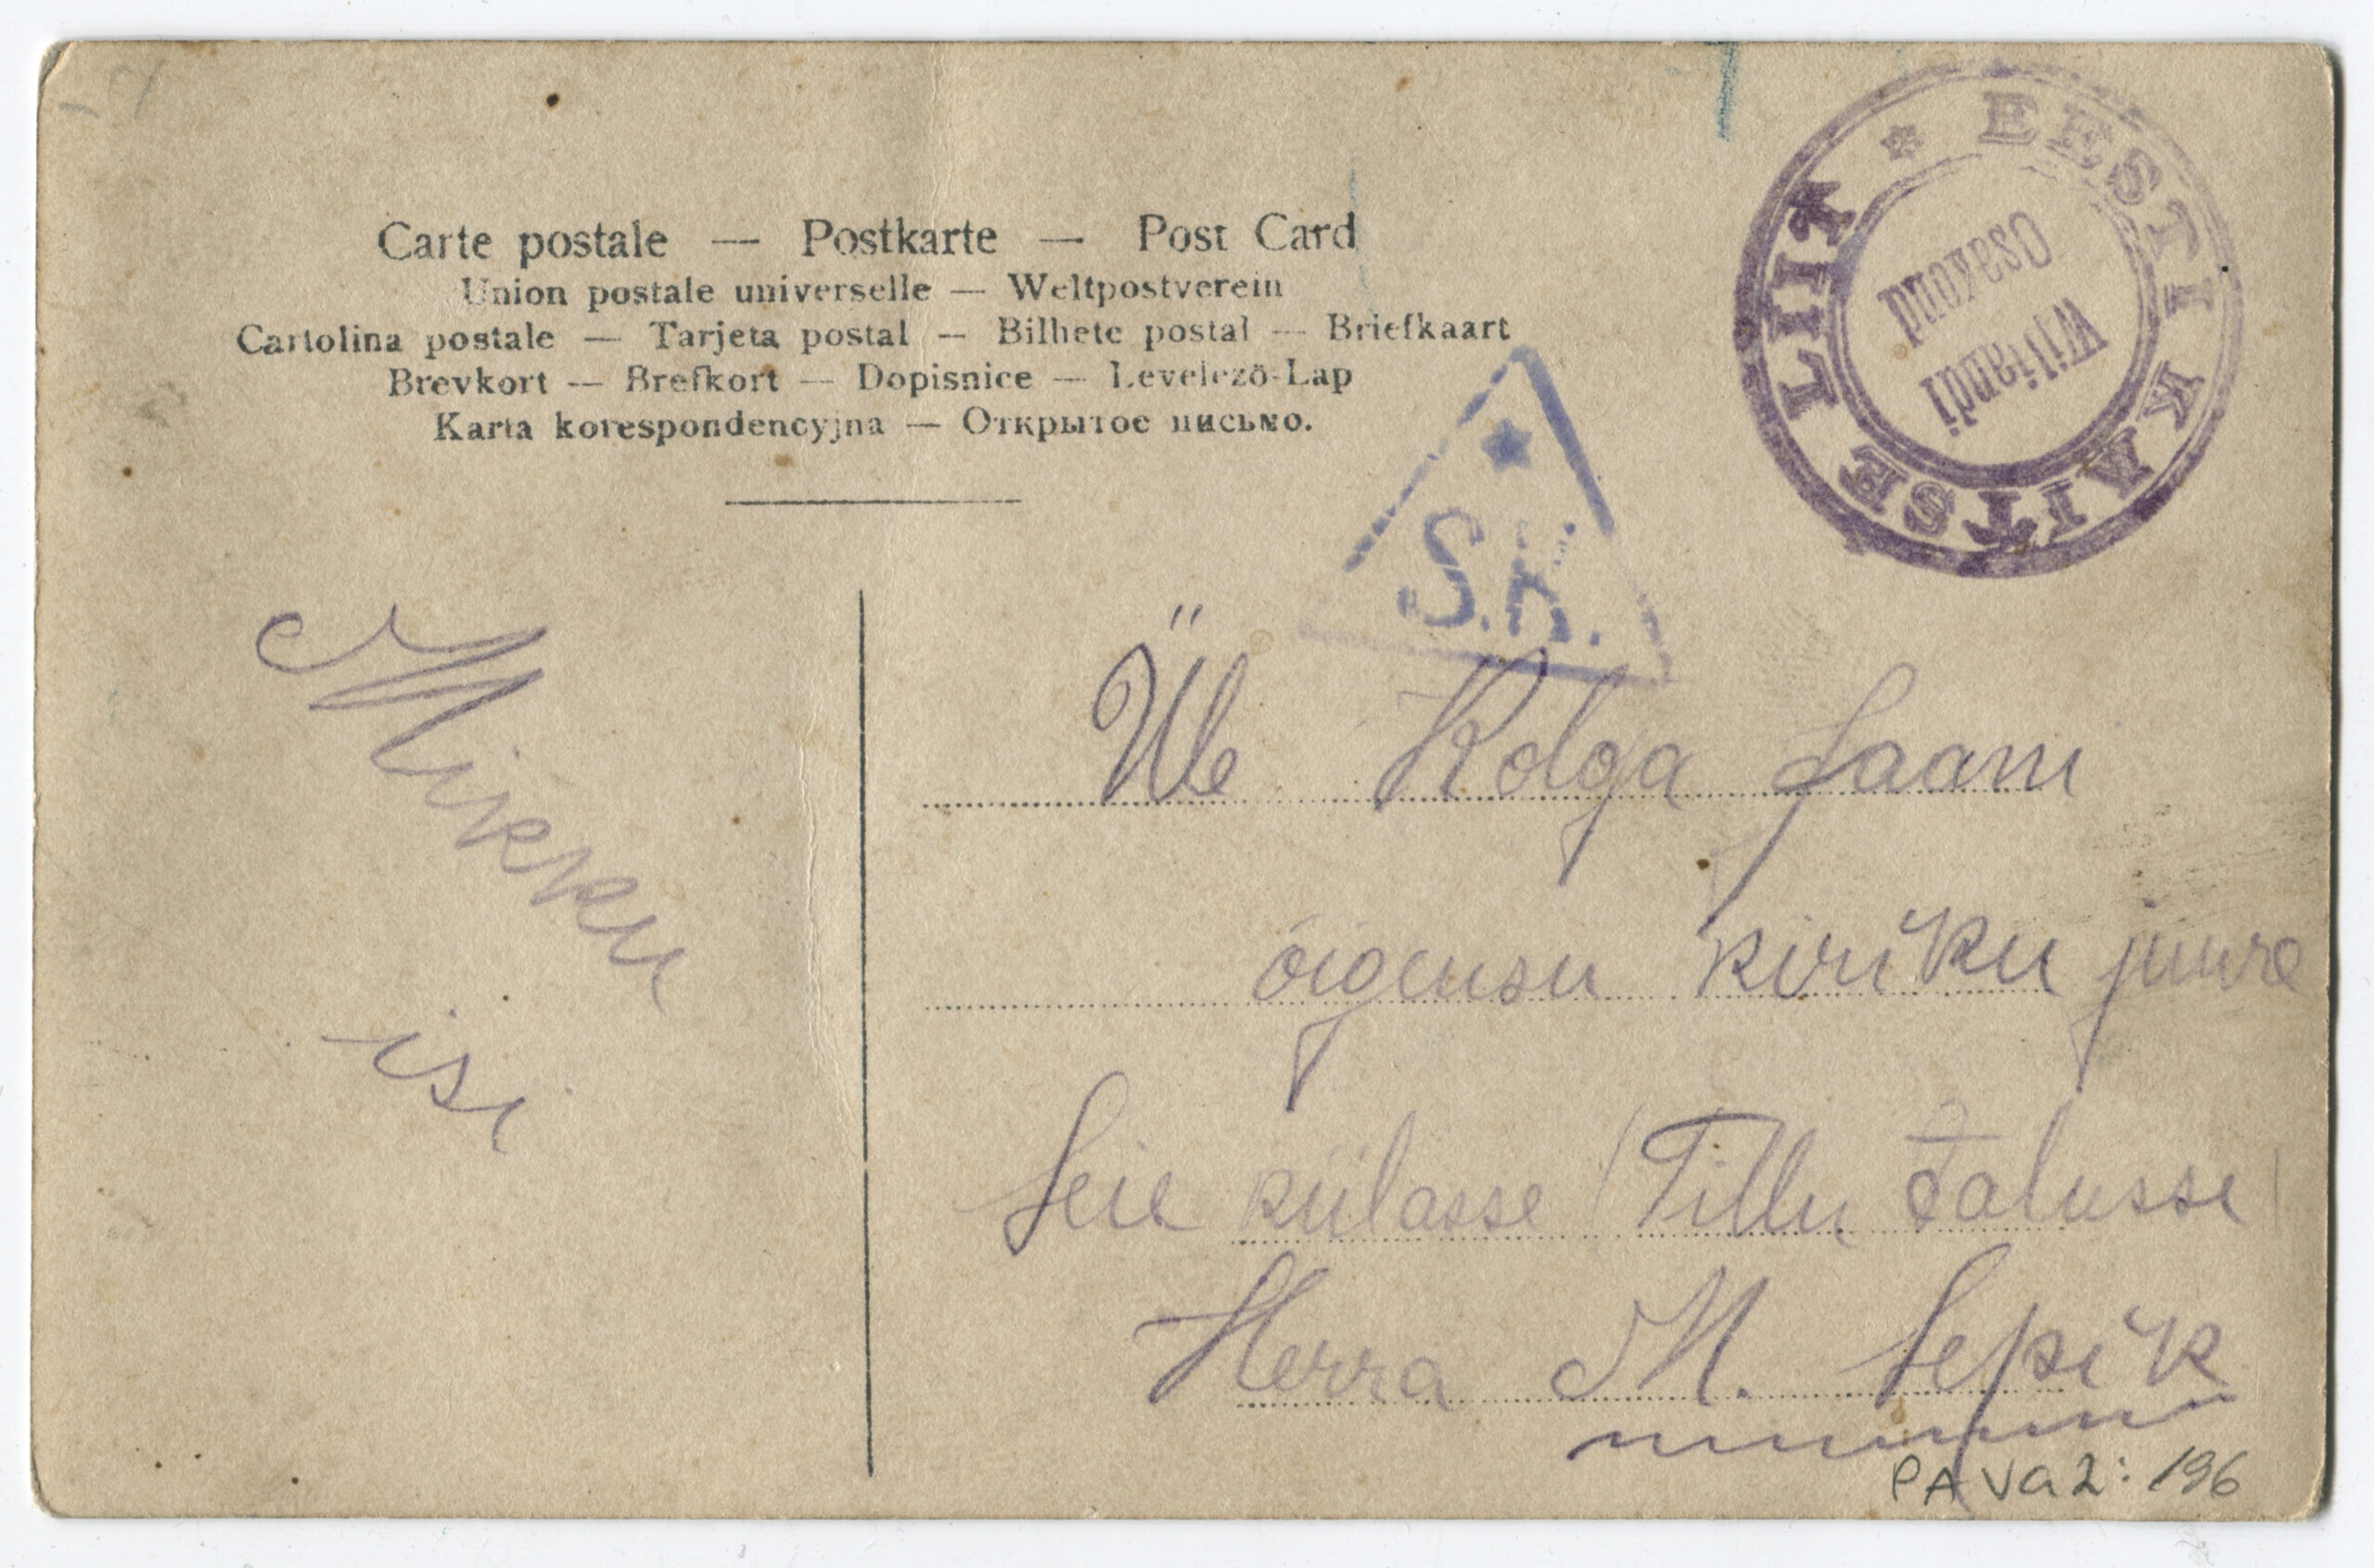 Carte postale — Postkarte — Post Card
Union postale universelle — Weltpostverein
Cartolina postale — Tarjeta postal — Bilhete postal — Briefkaart
Brevkort — Brefkort — Dopisnice — Levelező-Lap
Karta korespondencyjna — Открытое письмо.
* EESTI KAITSE LIIT
Wiljandi
Osakond
S.K.
Üle Kolga Jaani
õigeusu kiriku juure
Leie külasse (Tillu talusse
Herra M. Sepik
Mikku
isi
PA VG 2: 196